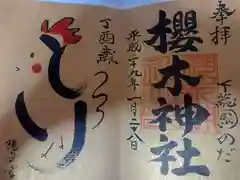 奉拝
下総国のだ
櫻木神社
平成二十九年一月二十八日
丁酉歳
とり